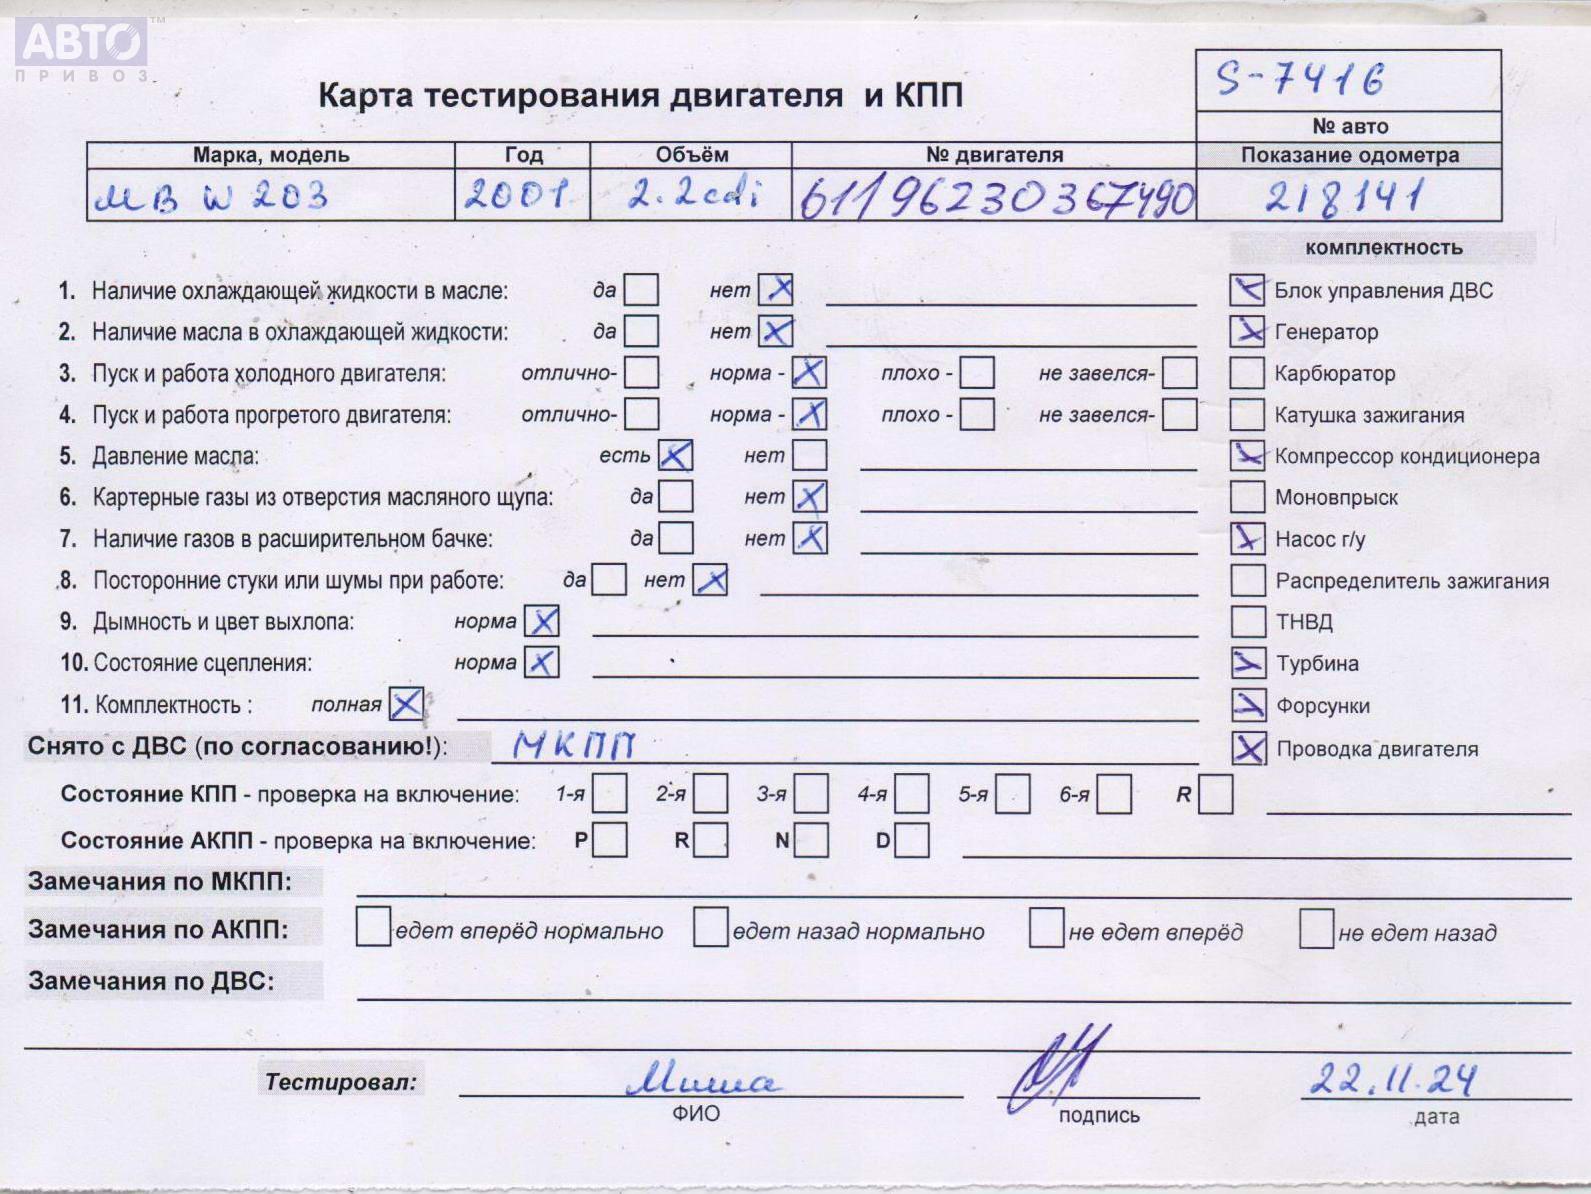 АВТО™
ПРИВОЗ
S-7416
Карта тестирования двигателя и КПП
№ авто
Марка, модель Год Объём № двигателя Показание одометра
МВ W 203 2001 2.2cdi 61196230367490 218141
комплектность
1. Наличие охлаждающей жидкости в масле: да нет X Блок управления ДВС
2. Наличие масла в охлаждающей жидкости: да нет X Генератор
3. Пуск и работа холодного двигателя: отлично- норма - X плохо - не завелся- Карбюратор
4. Пуск и работа прогретого двигателя: отлично- норма - X плохо - не завелся- Катушка зажигания
5. Давление масла: есть X нет Компрессор кондиционера
6. Картерные газы из отверстия масляного щупа: да нет X Моновпрыск
7. Наличие газов в расширительном бачке: да нет X Насос г/у
8. Посторонние стуки или шумы при работе: да нет X Распределитель зажигания
9. Дымность и цвет выхлопа: норма X ТНВД
10. Состояние сцепления: норма X Турбина
11. Комплектность : полная X Форсунки
Снято с ДВС (по согласованию!): МКПП Проводка двигателя
Состояние КПП - проверка на включение: 1-я 2-я 3-я 4-я 5-я 6-я R
Состояние АКПП - проверка на включение: P R N D
Замечания по МКПП:
Замечания по АКПП: едет вперёд нормально едет назад нормально не едет вперёд не едет назад
Замечания по ДВС:
Тестировал: Миша 22.11.24
ФИО подпись дата